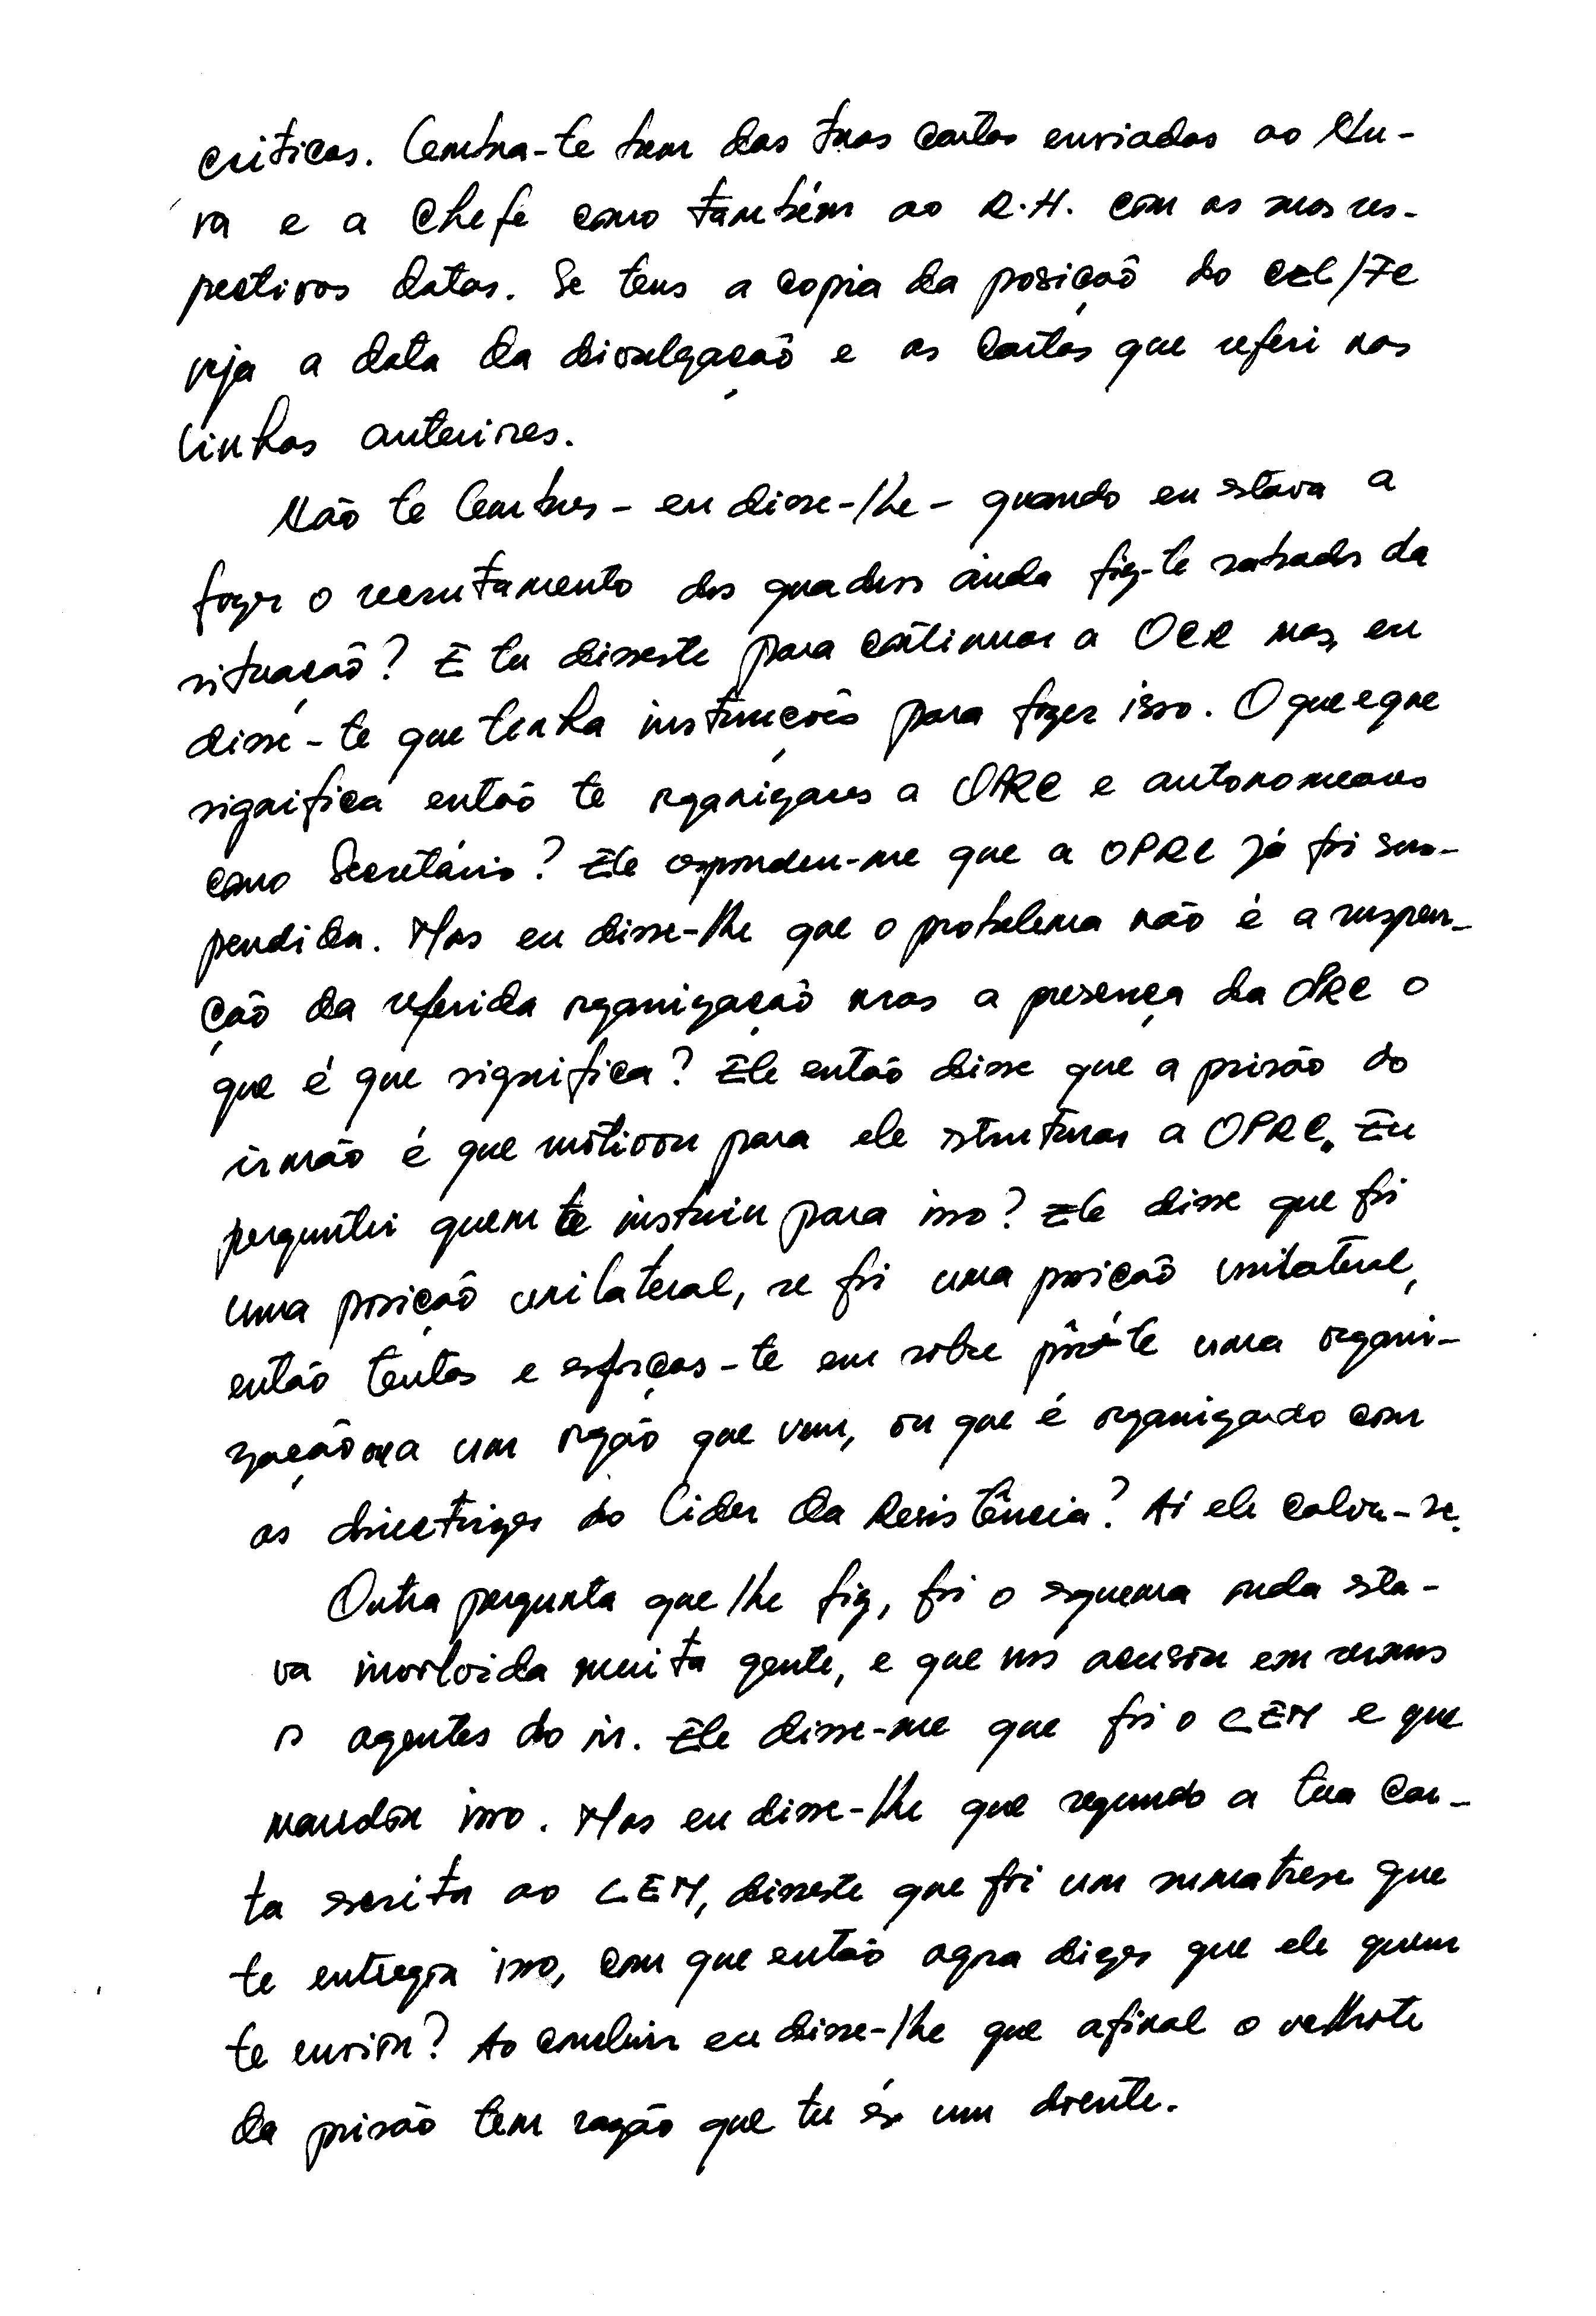 criticas. Lembra-te bem das tuas cartas enviadas ao Nu-
va e a Chefe como também ao R.H. com as suas res-
pectivas datas. Se tens a copia da posição do CEL/FC
veja a data da divulgação e as cartas que referi nas
linhas anteriores.
Não te lembres - eu disse-lhe - quando eu estava a
fazer o recrutamento dos quadros ainda fiz-te sabado da
situação? E tu disseste para cõtinuar a OCR mas, eu
disse-te que tenha instruções para fazer isso. O que e que
significa então te rganizares a OPRC e autonomeares
como Secretário? Ele espondeu-me que a OPRC já foi sus-
pendida. Mas eu disse-lhe que o problema não é a suspen-
ção da referida rganização mas a presença da OPRC o
que é que significa? Ele então disse que a prisão do
irmão é que motivou para ele struturar a OPRC. Eu
perguntei quem te instruiu para isso? Ele disse que foi
uma posição unilateral, se foi uma posição unilateral,
então tentas e esforças-te em sobre pôr-te uma organi-
zação a um orgão que vem, ou que é organizado com
as directrizes do Lider da Resistência? Aí ele calou-se.
Outra pergunta que lhe fiz, foi o esquema onda sta-
va involvida muita gente, e que nos acusou em sermos
os agentes do in. Ele disse-me que foi o CEM e que
mandou isso. Mas eu disse-lhe que segundo a tua car-
ta escrita ao CEM, disseste que foi um sumatrese que
te entregou isso, com que então agora dizes que ele quem
te enviou? Ao concluir eu disse-lhe que afinal o velhote
da prisão tem razão que tu és um doente.